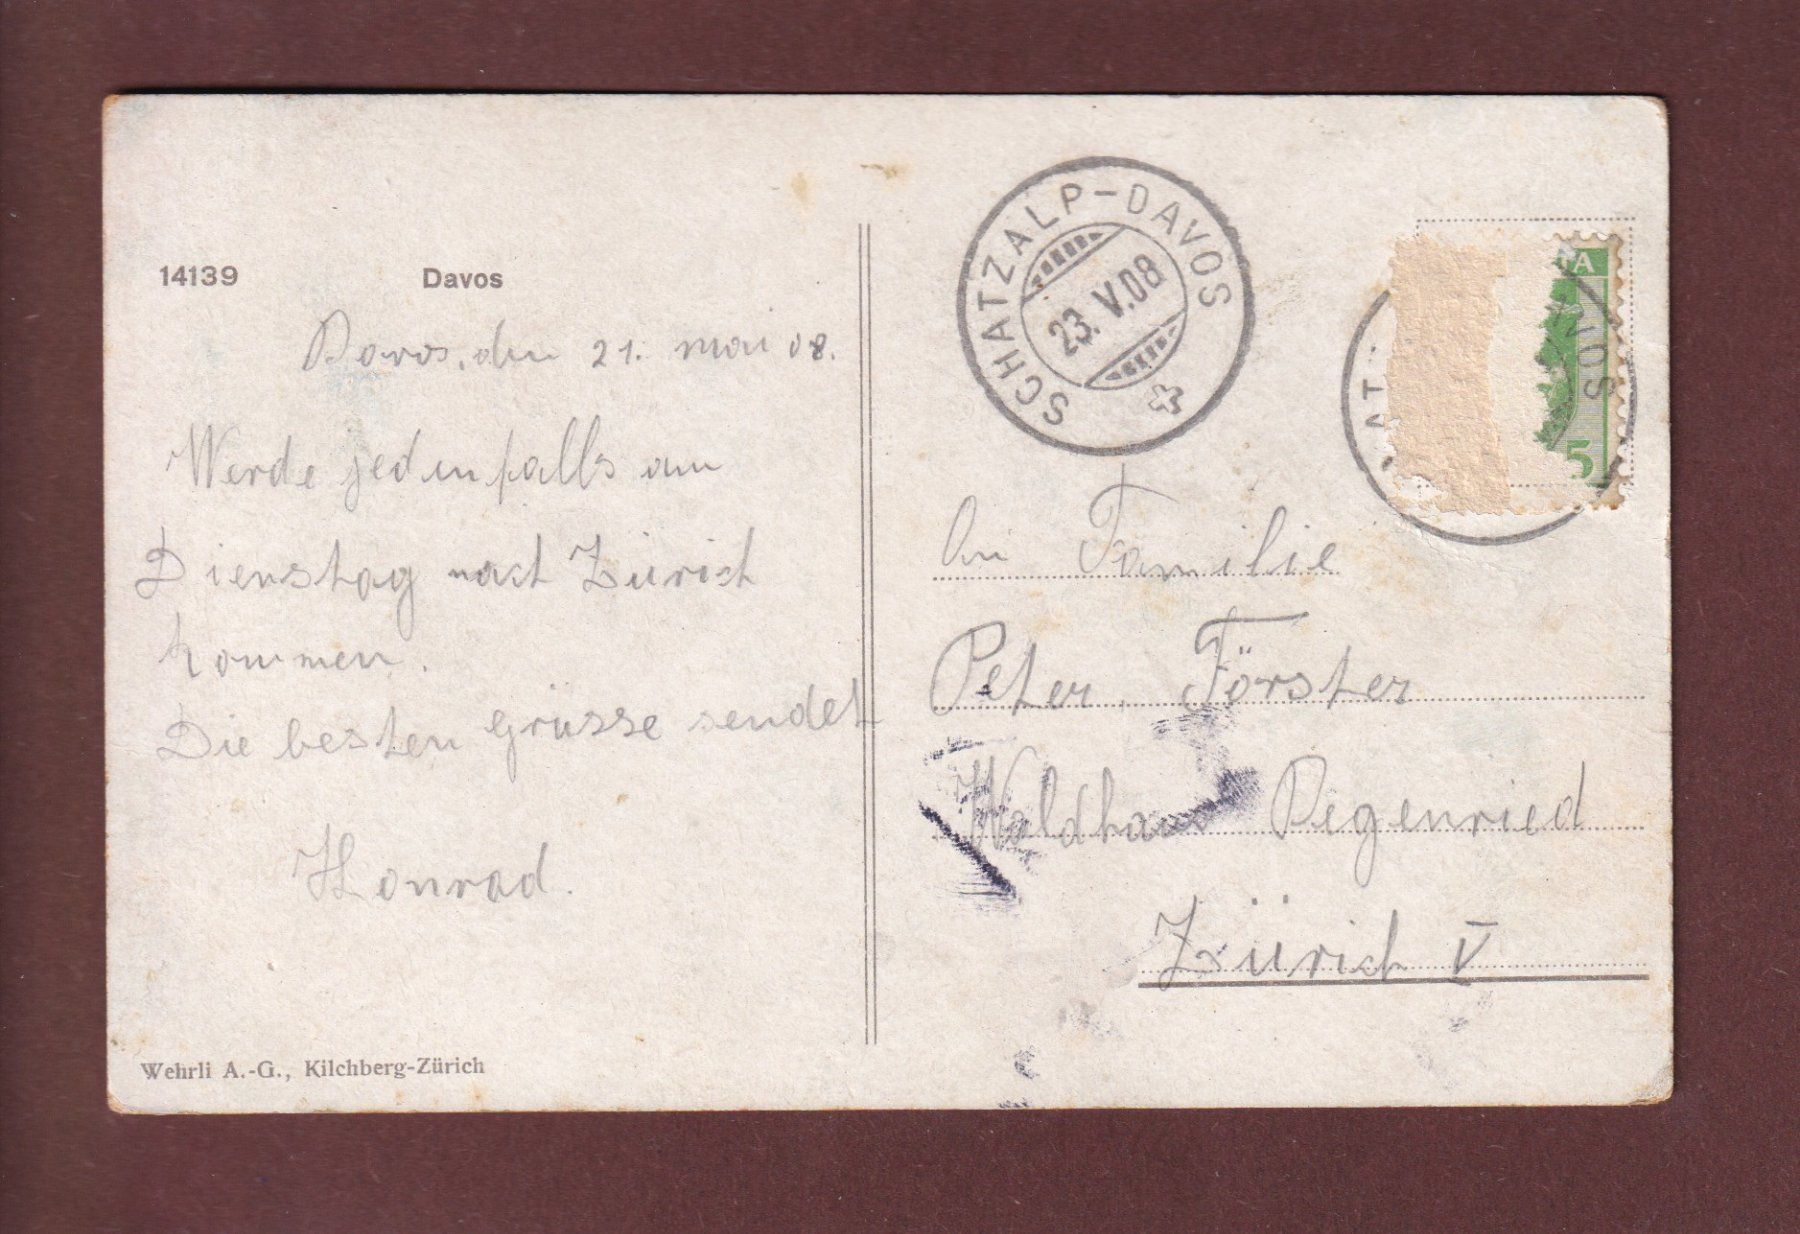 14139 Davos
Davos, den 21. Mai 08.
Werde jedenfalls am
Dienstag nach Zürich
kommen.
Die besten Grüsse sendet
Konrad.
Wehrli A.-G., Kilchberg-Zürich
SCHATZALP-DAVOS
23.V.08
AT
VOS
A
5
An Familie
Peter Förster
Waldhaus Degenried
Zürich V